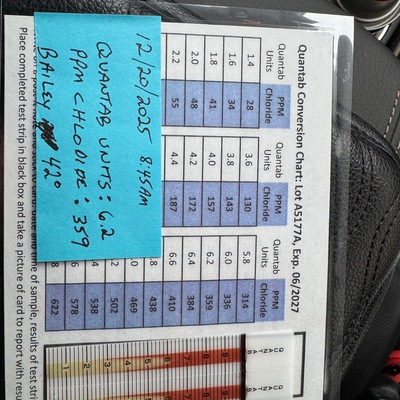 Quantab Conversion Chart: Lot A5177A, Exp. 06/2027
Quantab Units PPM Chloride Quantab Units PPM Chloride Quantab Units PPM Chloride
1.4 28 3.6 130 5.8 314
1.6 34 3.8 143 6.0 336
1.8 41 4.0 157 6.2 359
2.0 48 4.2 172 6.4 384
2.2 55 4.4 187 6.6 410
.8 438
.0 469
.2 502
.4 538
.6 578
.8 622
12/20/2025 8:45AM
QUANTAB UNITS: 6.2
PPM CHLODIDE: 359
BAILEY 42°
QUANTAB
1 2 3 4 5 6 7 8 9
QUANTAB
time of sample, results of test stri
Place completed test strip in black box and take a picture of card to report with resu